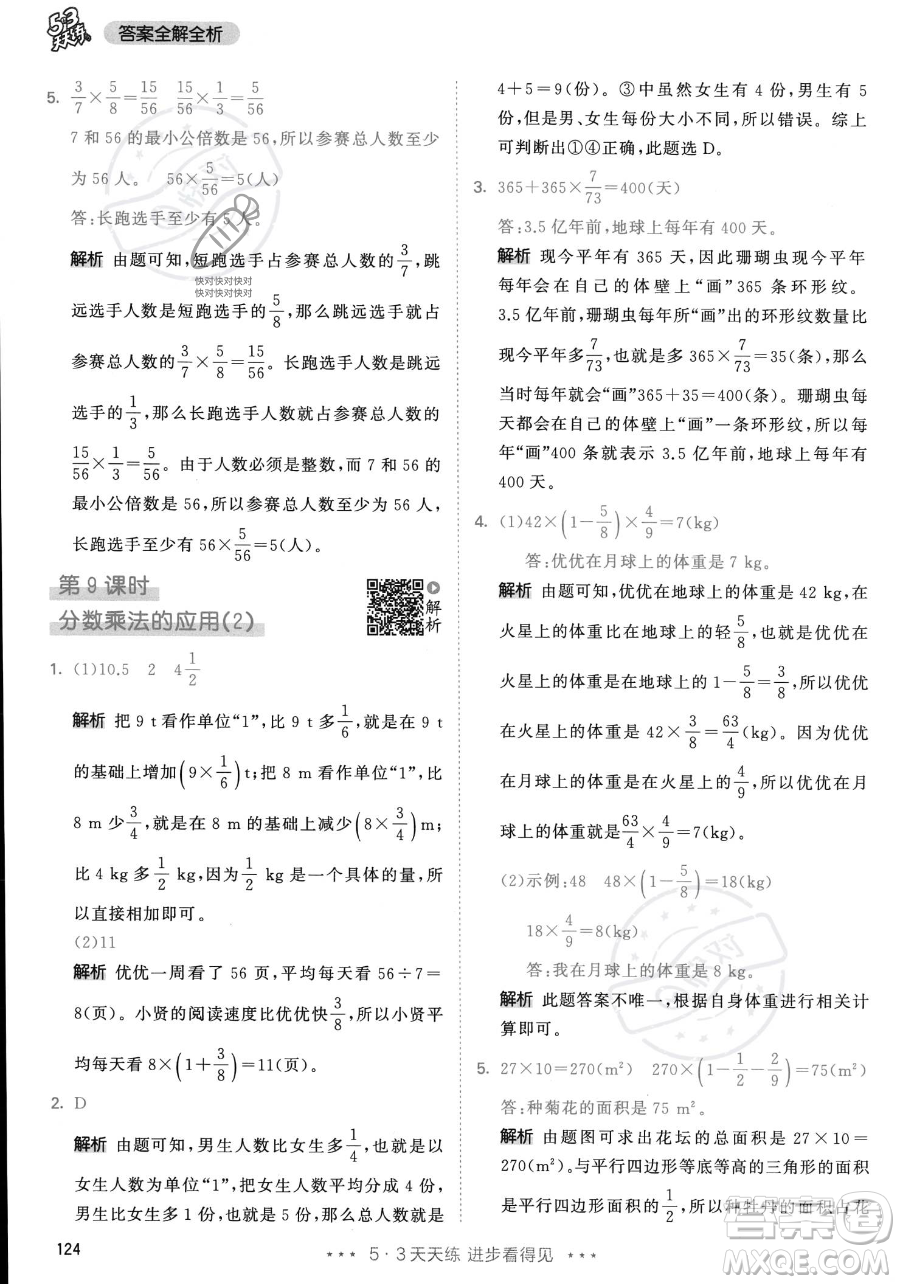 53
天天练
答案全解全析
5. 3/7×5/8=15/56 15/56×1/3=5/56
7 和 56 的最小公倍数是 56,所以参赛总人数至少
为 56 人。 56×5/56=5(人)
答:长跑选手至少有 5 人。
解析 由题可知,短跑选手占参赛总人数的 3/7,跳
快对快对快对
快对快对快对
远选手人数是短跑选手人数的 5/8,那么跳远选手就占
参赛总人数的 3/7×5/8=15/56,长跑选手人数是跳远
选手的 1/3,那么长跑选手人数就占参赛总人数的
15/56×1/3=5/56。由于人数必须是整数,而 7 和 56 的
最小公倍数是 56,所以参赛总人数至少为 56 人,
长跑选手至少有 56×5/56=5(人)。
第 9 课时
分数乘法的应用(2)
解析
1. (1)10.5 2 4 1/2
解析 把 9 t 看作单位“1”,比 9 t 多 1/6,就是在 9 t
的基础上增加(9×1/6)t;把 8 m 看作单位“1”,比
8 m 少 3/4,就是在 8 m 的基础上减少(8×3/4)m;
比 4 kg 多 1/2 kg,就是在 4 kg 的基础上多 1/2 kg,所
以直接相加即可。
(2)11
解析 优优一周看了 56 页,平均每天看 56÷7=
8(页)。小贤的阅读速度比优优快 3/8,所以小贤平
均每天看 8×(1+3/8)=11(页)。
2. D
解析 由题可知,男生人数比女生多 1/4,就是以
女生人数为单位“1”,将女生人数平均分成 4 份,
男生人数比女生多 1 份,那么总份数就应该是
4+5=9(份)。③中虽然女生有 4 份,男生有 5
份,但是男、女生每份大小不同,所以错误。综上
可判断出①④正确,此题选 D。
3. 365+365×7/73=400(天)
答:3.5 亿年前,地球上每年有 400 天。
解析 现今平年有 365 天,说明珊瑚虫现今平年
每年会在自己的体壁上“画”365 条环形纹。
3.5 亿年前,珊瑚虫每年“画”出的环形纹数量比
现今平年多 7/73,所以多了 365×7/73=35(条),那么
当时每年就会“画”365+35=400(条)。珊瑚虫每
天都会在自己的体壁上“画”一条环形纹,所以每
年“画”400 条就表示 3.5 亿年前,地球上每年有
400 天。
4. (1)42×(1-5/8)×4/9=7(kg)
答:优优在月球上的体重是 7 kg。
解析 由题可知,优优在地球上的体重是 42 kg,在
火星上的体重比在地球上的轻 5/8,也就是优优在
火星上的体重是地球上的 1-5/8=3/8,所以优优
在火星上的体重是 42×3/8=63/4(kg)。因为优优
在月球上的体重是在火星上的 4/9,所以优优在月
球上的体重就是 63/4×4/9=7(kg)。
(2)示例:48 48×(1-5/8)=18(kg)
18×4/9=8(kg)
答:我在月球上的体重是 8 kg。
解析 此题答案不唯一,根据自身体重进行相关计
算即可。
5. 27×10=270(m²) 270×(1-1/2-2/9)=75(m²)
答:种菊花的面积是 75 m²。
解析 由题图可求出花坛的总面积是 27×10=
270(m²),与平行四边形等底等高的三角形的面积
是平行四边形面积的 1/2,所以种牡丹的面积占花
124
5·3 天天练 进步看得见